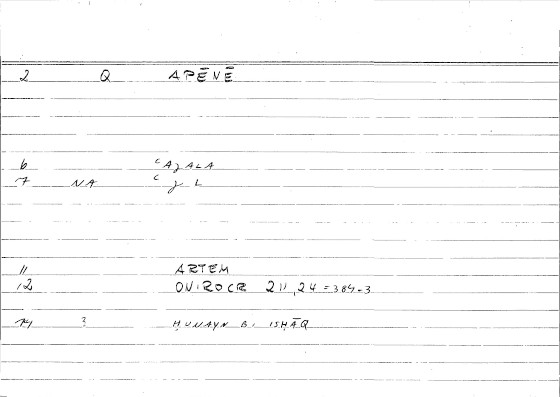 2 Q APĒNĒ
6 ʿAJALA
7 NA ʿJL
11 ARTEM
12 ONIROCR 211,24=389-3
14 3 ḤUNAYN B. ISḤĀQ